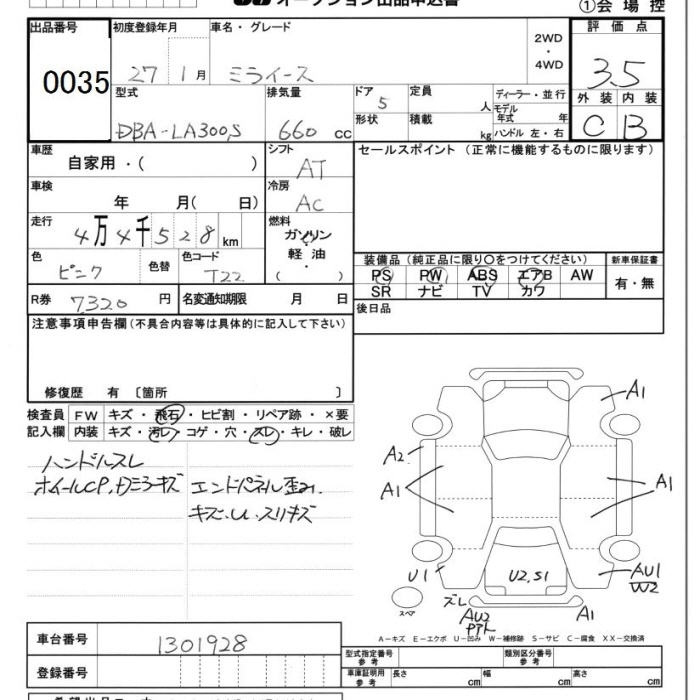 オークション出品申込書
①会場控
出品番号
0035
初度登録年月
27 1月
車名・グレード
ミライース
2WD
・
4WD
評価点
3.5
型式
DBA-LA300S
排気量
660 cc
ドア
5
定員
人
ディーラー・並行
モデル年式 年
形状
積載
kg
ハンドル 左・右
外装 内装
C B
車歴
自家用・( )
シフト
AT
セールスポイント（正常に機能するものに限ります）
車検
年 月( 日)
冷房
AC
走行
4万4千528km
燃料
ガソリン
軽油
・
( )
色
ピンク
色替
色コード
T22
装備品（純正品に限り○をつけてください）
新車保証書
PS PW ABS エアB AW
有・無
SR ナビ TV カワ
R券
7320円
名変通知期限 月 日
後日品
注意事項申告欄(不具合内容等は具体的に記入して下さい)
修復歴 有 〔箇所 〕
検査員 FW キズ・飛石・ヒビ割・リペア跡・×要
記入欄 内装 キズ・汚レ・コゲ・穴・スレ・キレ・破レ
ハンドルスレ
ホイールCP、Dミラーキズ
エンドパネル歪み、
キズ・U、スリキズ
A1
A2
A1
A1
U1
U2,S1
AU1
W2
スペア
ズレ
AU2
A1
A-キズ E-エクボ U-凹み W-補修跡 S-サビ C-腐食 XX-交換済
車台番号
1301928
型式指定番号
参考
類別区分番号
参考
登録番号
車庫証明用
参考
長さ cm
幅 cm
高さ cm